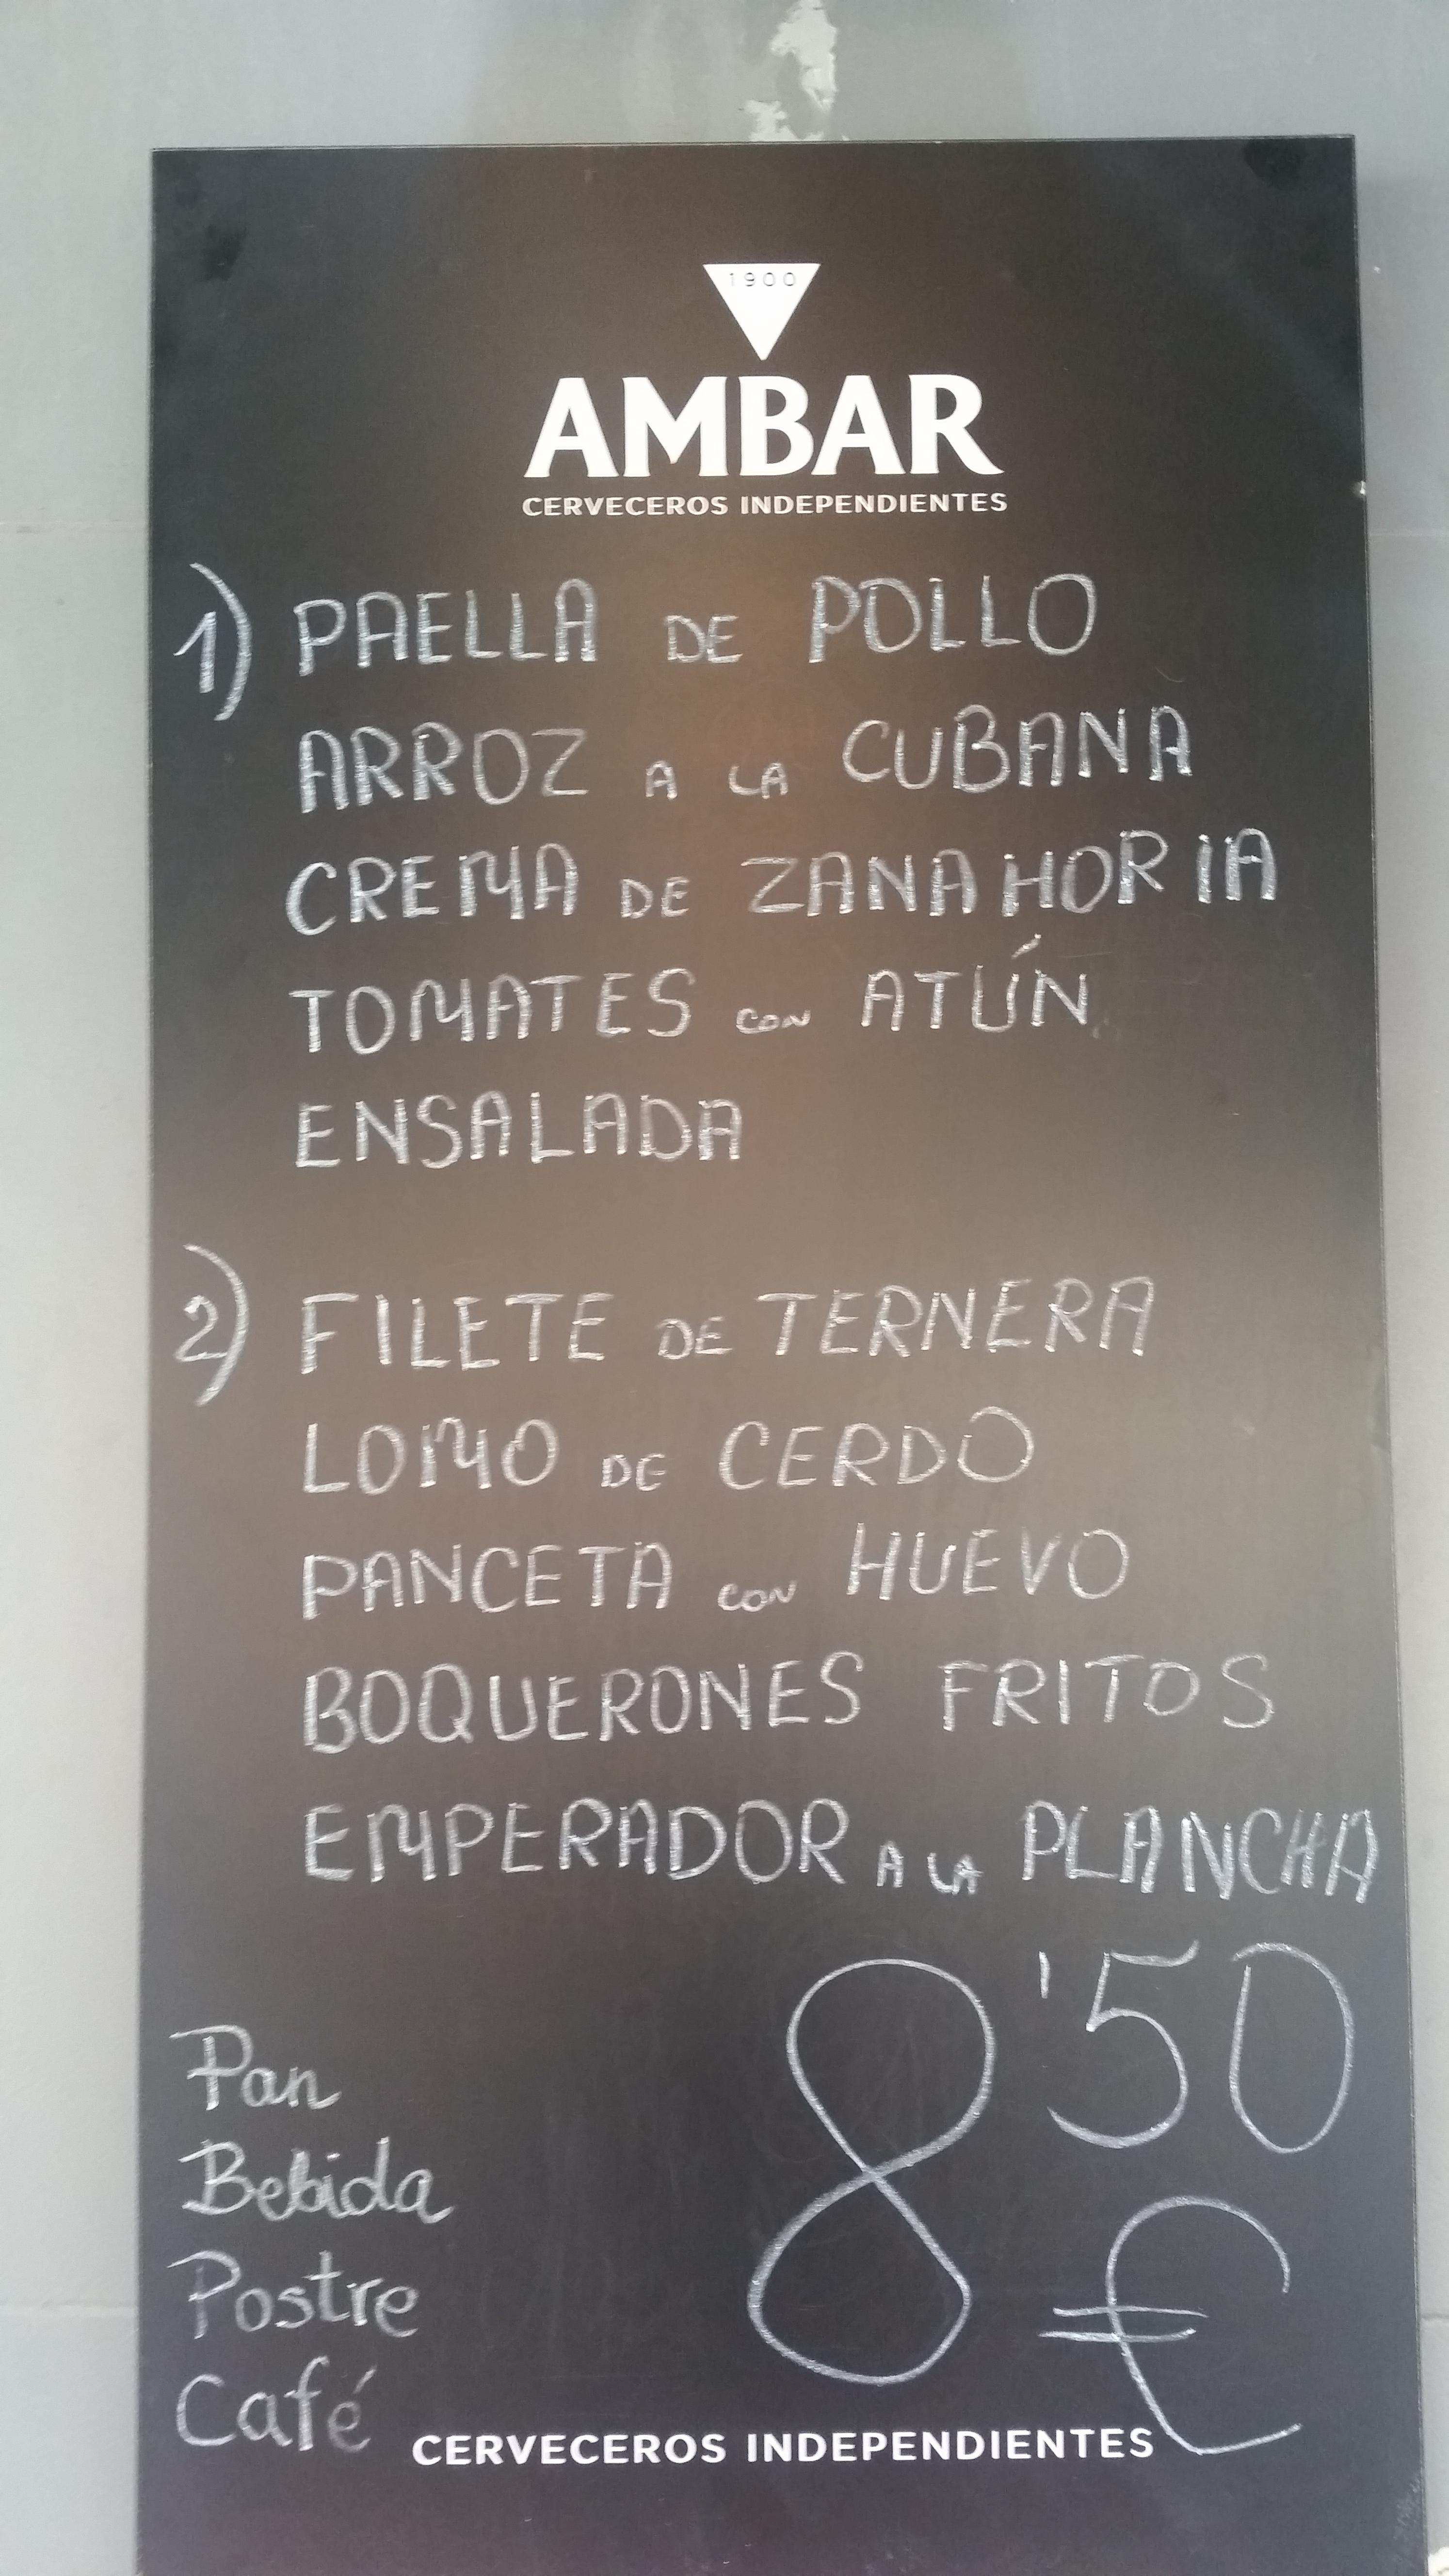 1900
AMBAR
CERVECEROS INDEPENDIENTES
1) PAELLA DE POLLO
ARROZ A LA CUBANA
CREMA DE ZANAHORIA
TOMATES CON ATÚN
ENSALADA
2) FILETE DE TERNERA
LOMO DE CERDO
PANCETA CON HUEVO
BOQUERONES FRITOS
EMPERADOR A LA PLANCHA
8'50 €
Pan
Bebida
Postre
Café
CERVECEROS INDEPENDIENTES